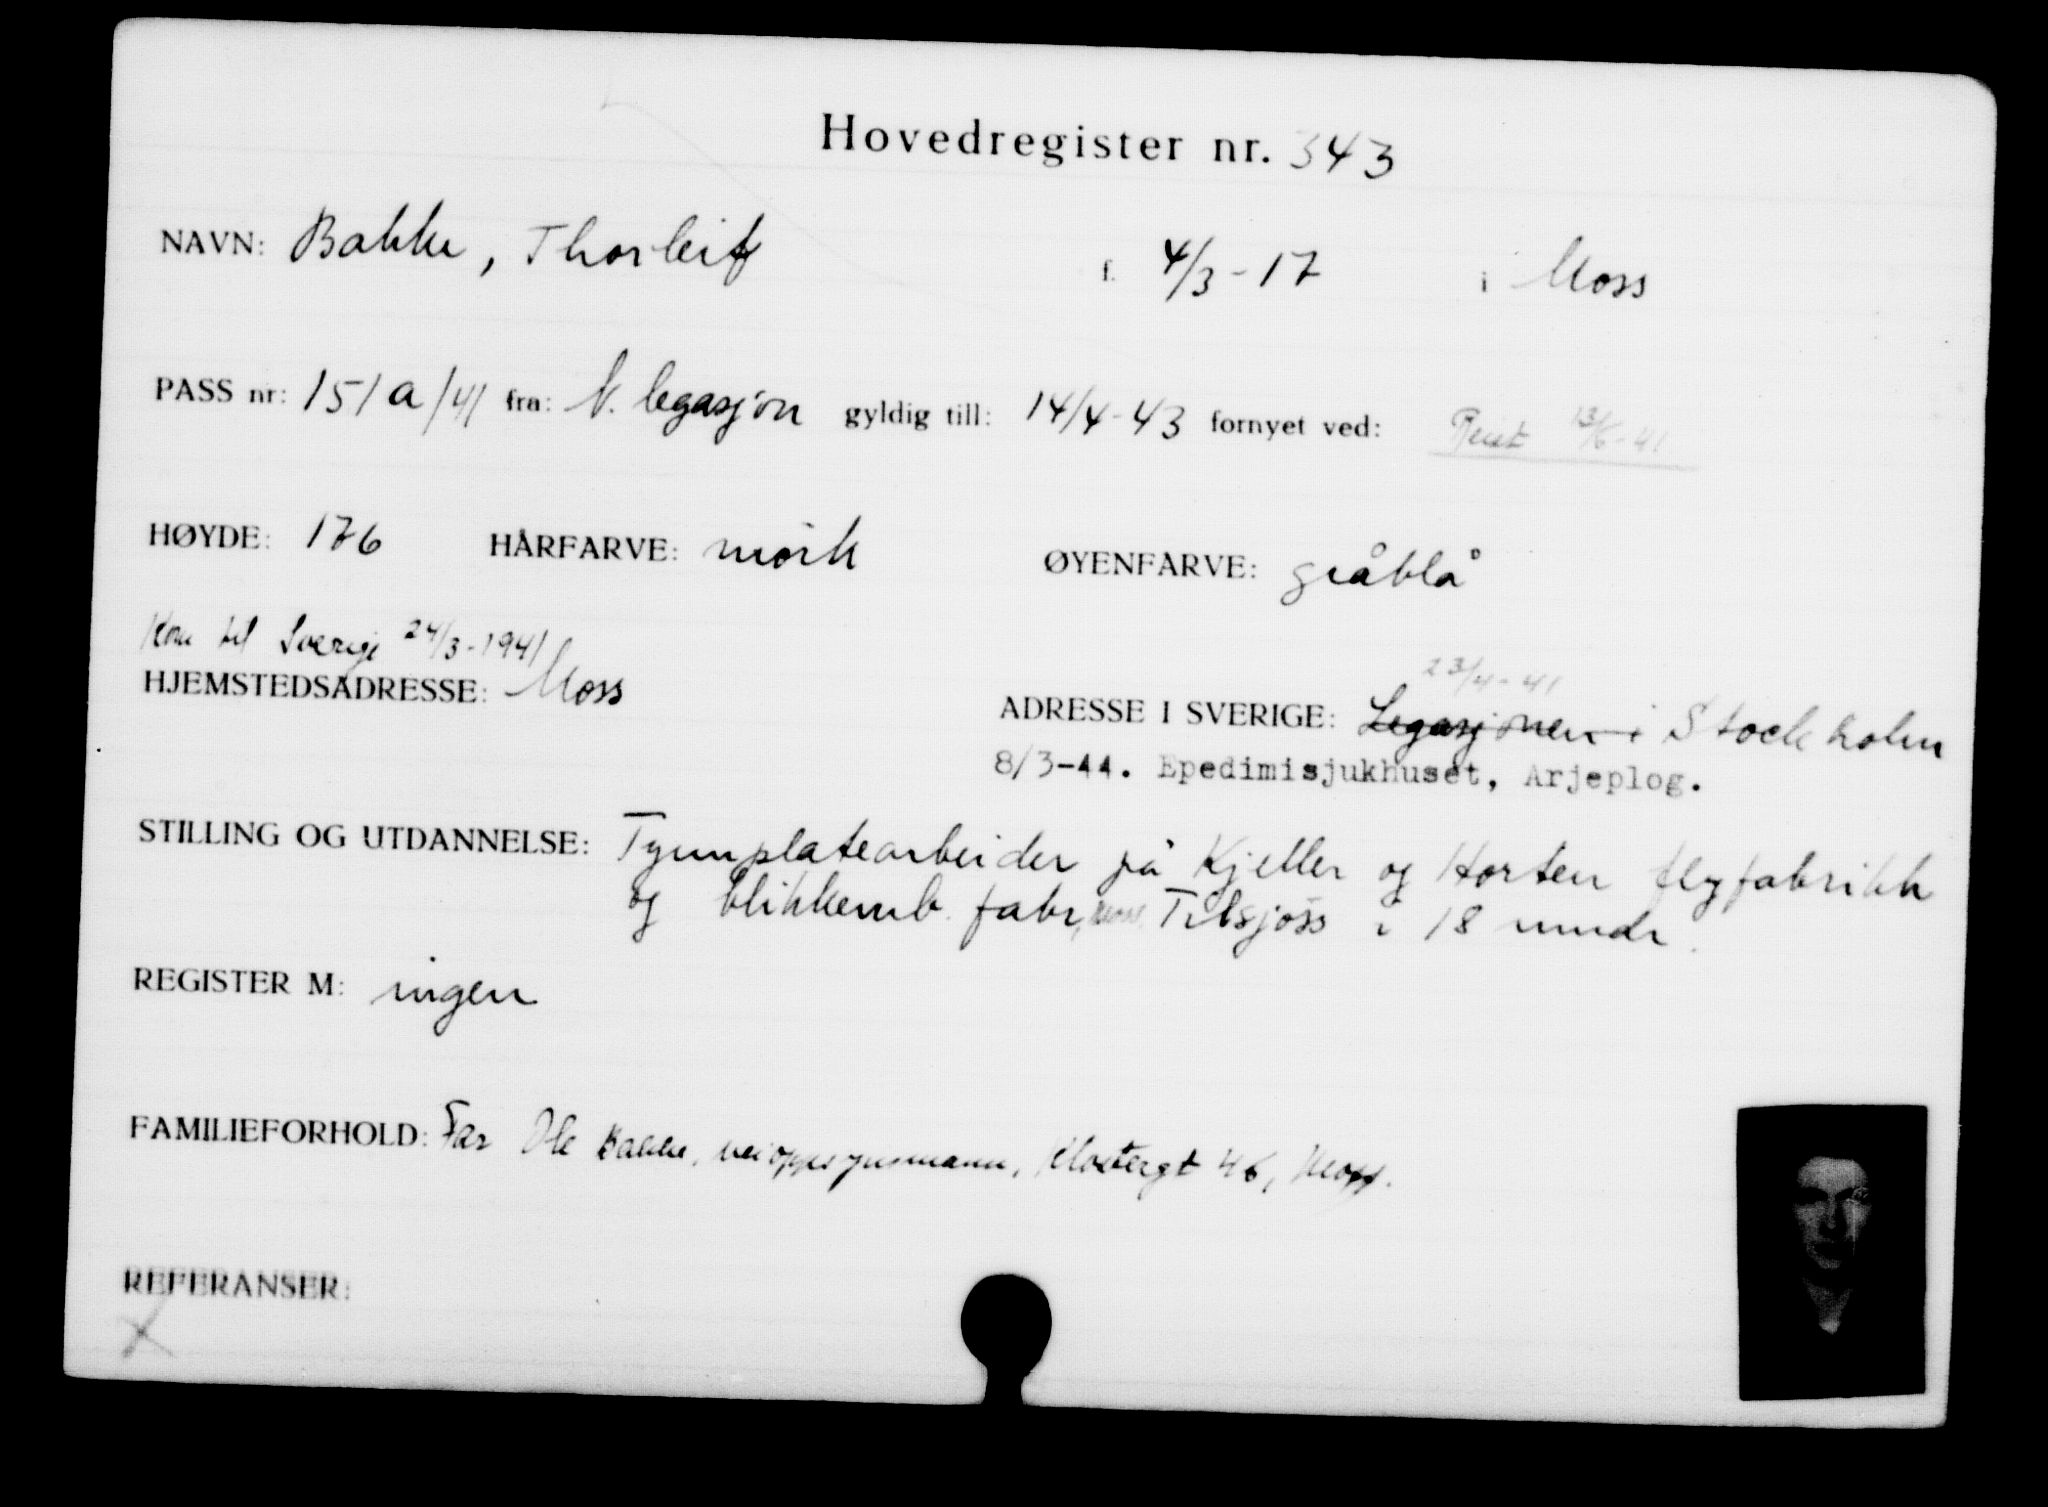 Hovedregister nr. 343
NAVN: Bakke, Thorleif f. 4/3-17 i Moss
PASS nr: 151a/41 fra: N. legasjon gyldig till: 14/4-43 fornyet ved: Reist 13/6-41
HØYDE: 176 HÅRFARVE: mørk ØYENFARVE: gråblå
Kom til Sverige 24/3-1941
HJEMSTEDSADRESSE: Moss
23/4-41
ADRESSE I SVERIGE: Legasjonen i Stockholm
8/3-44. Epedimisjukhuset, Arjeplog.
STILLING OG UTDANNELSE: Tynnplatearbeider på Kjeller og Horten flyfabrikk
og blikkemb. fabr, Moss. Tilsjøss i 18 mndr.
REGISTER M: ingen
FAMILIEFORHOLD: Far Ole Bakke, veioppsynsmann, Klostergt 46, Moss.
REFERANSER:
X